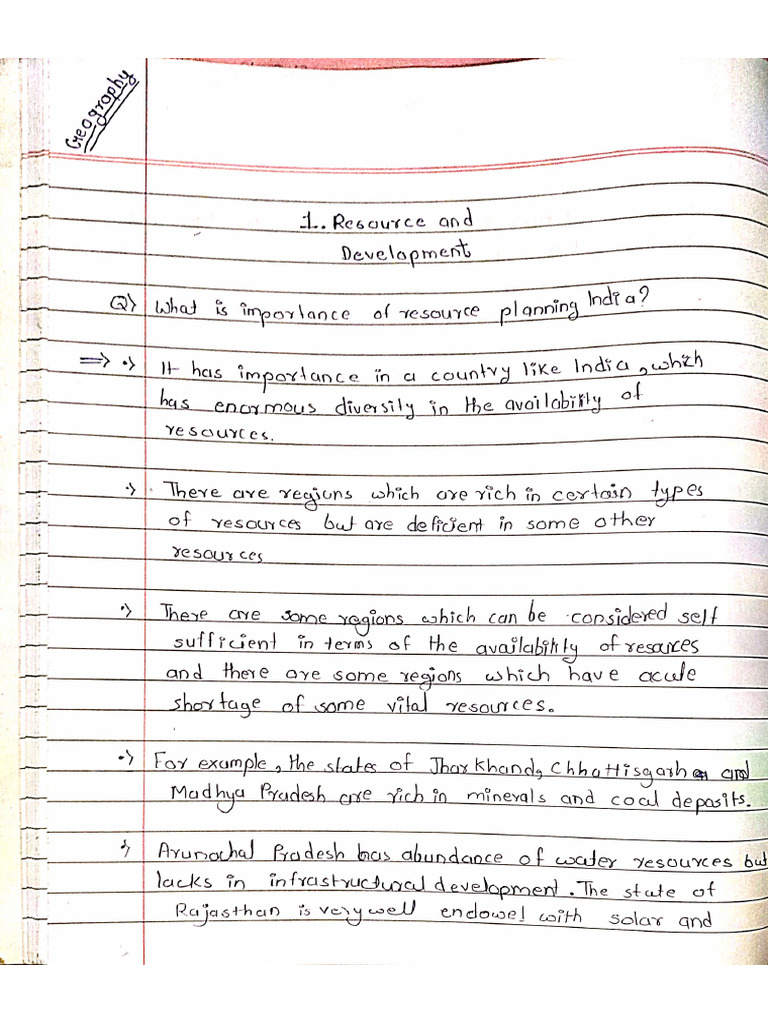 Geography
1. Resource and
Development
Q) What is importance of resource planning India?
=> •) It has importance in a country like India, which
has enormous diversity in the availability of
resources.
•) There are regions which are rich in certain types
of resources but are deficient in some other
resources
•) There are some regions which can be considered self
sufficient in terms of the availability of resources
and there are some regions which have acute
shortage of some vital resources.
•) For example, the states of Jharkhand, Chhattisgarh and
Madhya Pradesh are rich in minerals and coal deposits.
•) Arunachal Pradesh has abundance of water resources but
lacks in infrastructural development. The state of
Rajasthan is very well endowel with solar and